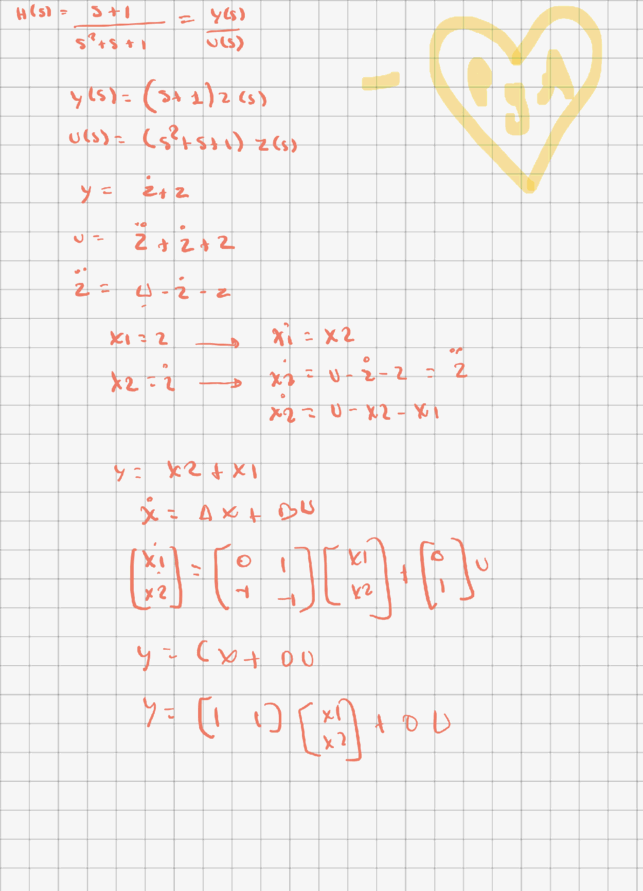 H(s) = (s+1)/(s²+s+1) = y(s)/u(s)
y(s) = (s+1) z(s)
u(s) = (s²+s+1) z(s)
y = ż+z
u = z̈ + ż + z
z̈ = u - ż - z
x1 = z → ẋ1 = x2
x2 = ż → ẋ2 = u - ż - z = z̈
ẋ2 = u - x2 - x1
y = x2 + x1
ẋ = Ax + Bu
[ẋ1; ẋ2] = [0 1; -1 -1] [x1; x2] + [0; 1] u
y = Cx + Du
y = [1 1] [x1; x2] + 0 u